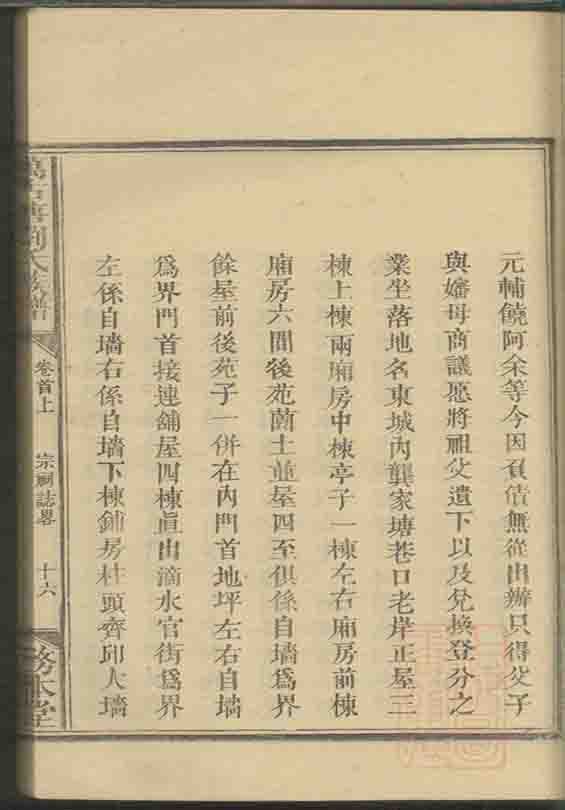 元輔饒阿余等今因負債無從出辦只得父子
與嬸母商議愿將祖父遺下以及兌換登分之
業坐落地名東城內龔家塘巷口老岸正屋三
棟上棟兩廂房中棟亭子一棟左右廂房前棟
廂房六間後苑薗土並屋四至俱係自墻爲界
餘屋前後苑子一併在內門首地坪左右自墻
爲界門首接連舖屋四棟直出滴水官街爲界
左係自墻右係自墻下棟鋪房柱頭齊邱人墻
劉氏族譜
卷首上
宗祠誌畧
十六
務本堂